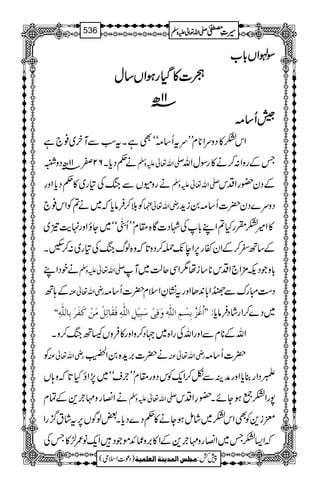 سیرتِ مصطفیٰ صلی اللہ تعالیٰ علیہ وسلم 536
سولہواں باب
ہجرت کا گیارہواں سال
۱۱ھ
جیش اُسامہ
اس لشکر کا دوسرا نام ’’سریہ اُسامہ‘‘ بھی ہے۔ یہ سب سے آخری فوج ہے
جس کے روانہ کرنے کا رسول اللہ صلی اللہ تعالیٰ علیہ وسلم نے حکم دیا۔ ۲۶ صفر ۱۱ھ دوشنبہ
کے دن حضور اقدس صلی اللہ تعالیٰ علیہ وسلم نے رومیوں سے جنگ کی تیاری کا حکم دیا اور
دوسرے دن حضرت اُسامہ بن زید رضی اللہ تعالیٰ عنہما کو بلا کر فرمایا کہ میں نے تم کو اس فوج
کا امیر لشکر مقرر کیا تم اپنے باپ کی شہادت گاہ مقام ’’اُبنٰی‘‘ میں جاؤ اور نہایت تیزی
کے ساتھ سفر کر کے ان کفار پر اچانک حملہ کر دو تاکہ وہ لوگ جنگ کی تیاری نہ کر سکیں۔
باوجودیکہ مزاج اقدس ناساز تھا مگر اسی حالت میں آپ صلی اللہ تعالیٰ علیہ وسلم نے خود اپنے
دست مبارک سے جھنڈا باندھا اور یہ نشانِ اسلام حضرت اُسامہ رضی اللہ تعالیٰ عنہ کے ہاتھ
میں دے کر ارشاد فرمایا: ’’اُغْزُ بِسْمِ اللّٰهِ وَفِیْ سَبِیْلِ اللّٰهِ فَقَاتِلْ مَنْ کَفَرَ بِاللّٰهِ‘‘
اللہ کے نام سے اور اللہ کی راہ میں جہاد کرو اور کافروں کے ساتھ جنگ کرو۔
حضرت اُسامہ رضی اللہ تعالیٰ عنہ نے حضرت بریدہ بن الحصیب رضی اللہ تعالیٰ عنہ کو
علمبردار بنایا اور مدینہ سے نکل کر ایک کوس دور مقام ’’جرف‘‘ میں پڑاؤ کیا تاکہ وہاں
پورا لشکر جمع ہو جائے۔ حضور اقدس صلی اللہ تعالیٰ علیہ وسلم نے انصار و مہاجرین کے تمام
معززین کو بھی اس لشکر میں شامل ہو جانے کا حکم دے دیا۔ بعض لوگوں پر یہ شاق گزرا
کہ ایسا لشکر جس میں انصار و مہاجرین کے اکابر و عمائد موجود ہیں ایک نو عمر لڑکا جس کے
پیش کش: مجلس المدینة العلمیة (دعوتِ اسلامی)